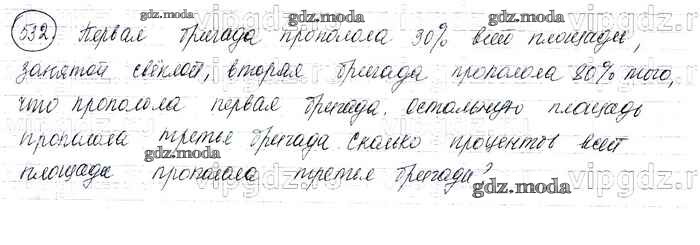 532. Первая бригада прополола 30% всей площади,
занятой свёклой, вторая бригада прополола 80% того,
что прополола первая бригада. Остальную площадь
прополола третья бригада. Сколько процентов всей
площади прополола третья бригада?
gdz.moda
gdz.moda
gdz.moda
gdz.moda
gdz.moda
vipgdz.ru
vipgdz.ru